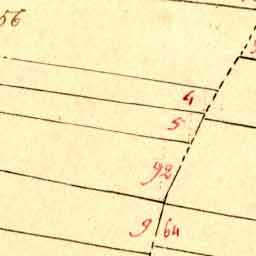 56
4
5
92
9 64